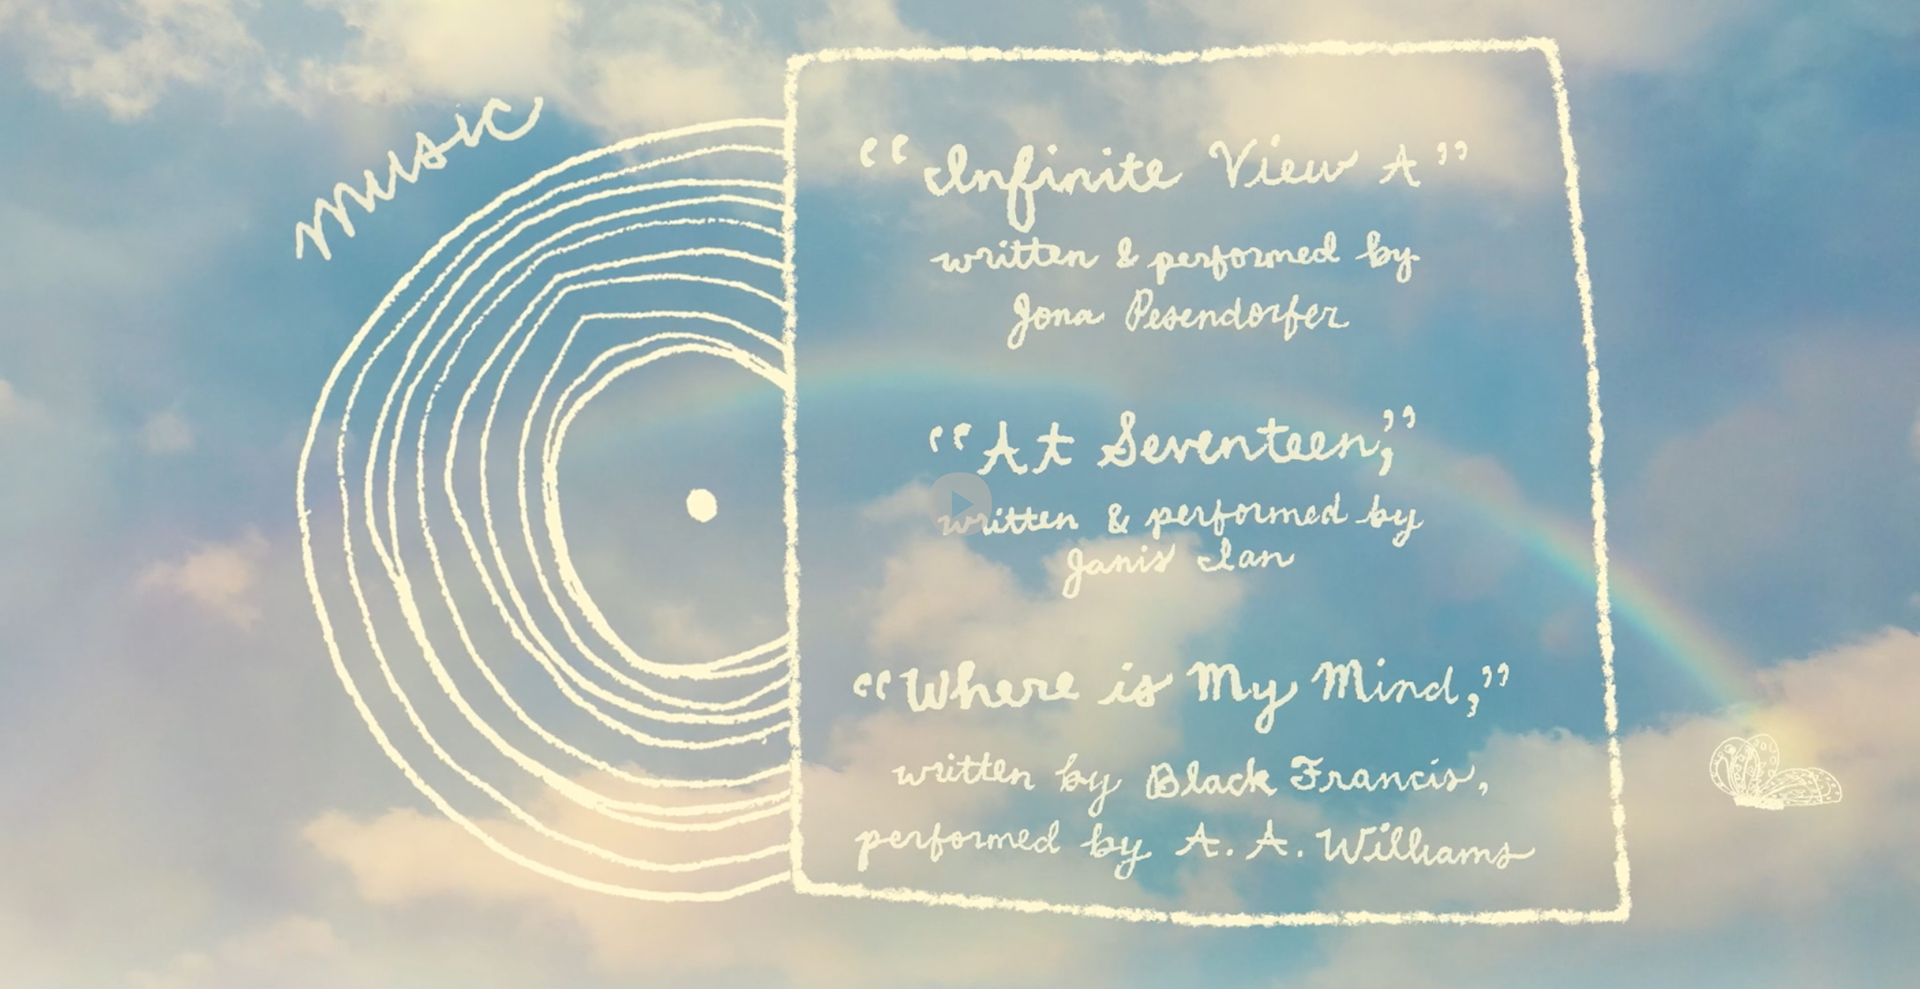 music
“Infinite View A”
written & performed by
Jona Pesendorfer
“At Seventeen,”
written & performed by
Janis Ian
“Where is My Mind,”
written by Black Francis,
performed by A. A. Williams